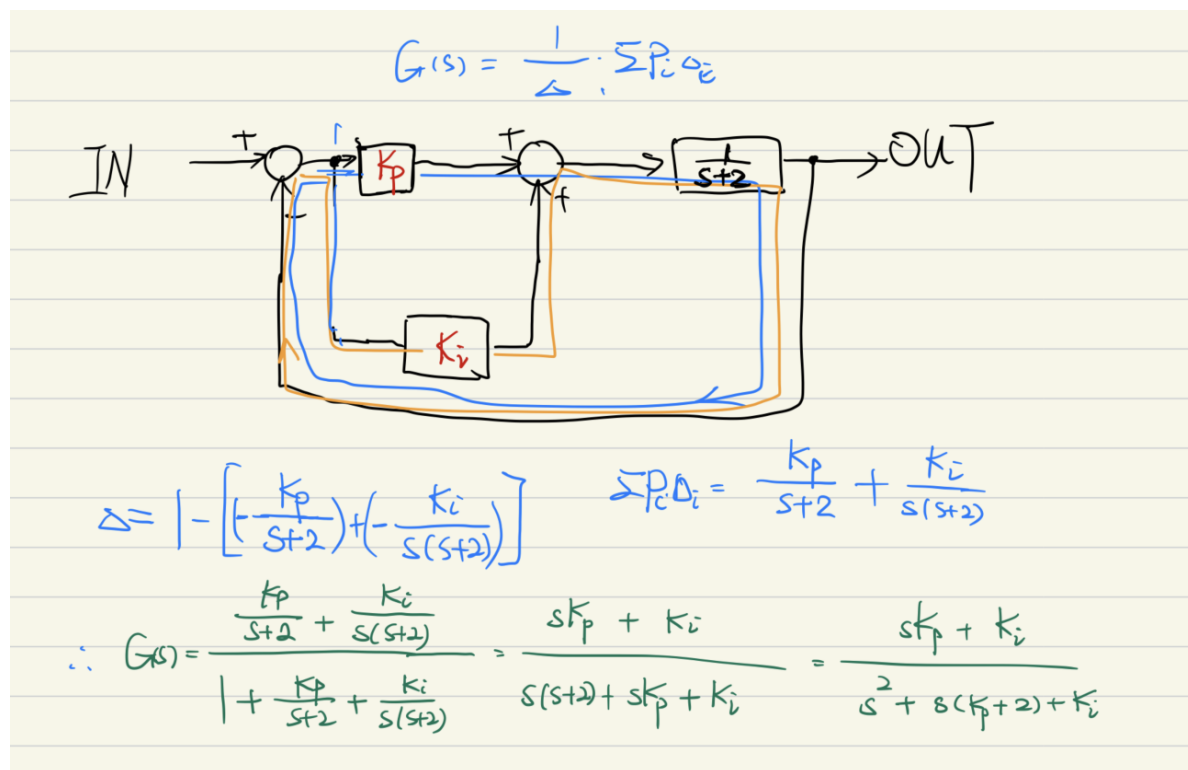 G(s) = 1/Δ · ΣPᵢΔᵢ
IN + − Kp + + 1/(s+2) OUT
Ki
Δ = 1 − [(−Kp/(s+2)) + (−Ki/(s(s+2)))] ΣPᵢΔᵢ = Kp/(s+2) + Ki/(s(s+2))
∴ G(s) = (Kp/(s+2) + Ki/(s(s+2))) / (1 + Kp/(s+2) + Ki/(s(s+2))) = (sKp + Ki) / (s(s+2) + sKp + Ki) = (sKp + Ki) / (s² + s(Kp+2) + Ki)